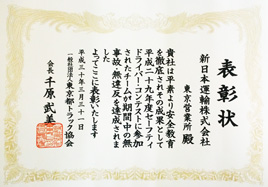 表彰状
新日本運輸株式会社
東京営業所 殿
貴社は平素より安全教育
を徹底されその成果として
平成二十九年度セーフティ
ドライバーコンテストに参加
されたチームが期間中の無
事故・無違反を達成されま
した
よってここに表彰いたします
平成三十年三月三十一日
一般社団法人東京都トラック協会
会長 千原武美